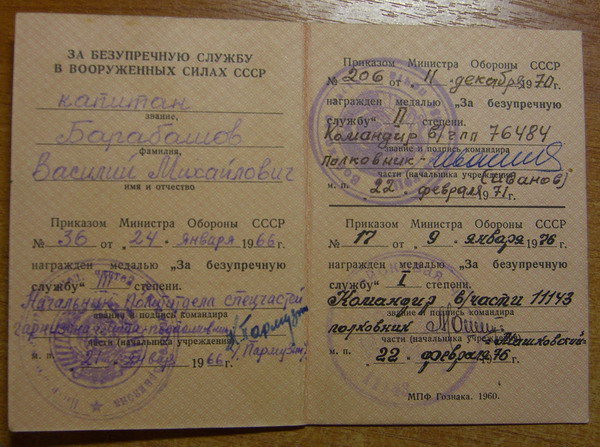 ЗА БЕЗУПРЕЧНУЮ СЛУЖБУ
В ВООРУЖЕННЫХ СИЛАХ СССР
капитан
звание,
Барабашов
фамилия,
Василий Михайлович
имя и отчество
Приказом Министра Обороны СССР
№ 36 от „24“ января 1966 г.
награжден медалью „За безупречную
службу“ III степени.
Начальник Политотдела спецчастей
гарнизона подполковник
звание и подпись командира
части (начальника учреждения)
/Пармузин/
м. п. 1966 г.
Приказом Министра Обороны СССР
№ 206 от „11“ декабря 1970 г.
награжден медалью „За безупречную
службу“ II степени.
Командир в/ч пп 76484
звание и подпись командира
Полковник-
части (начальника учреждения)
(Иванов)
м. п. „22“ февраля 1971 г.
Приказом Министра Обороны СССР
№ 17 от „9“ января 1976 г.
награжден медалью „За безупречную
службу“ I степени.
Командир в/части 11143
звание и подпись командира
полковник
части (начальника учреждения)
Машковский
м. п. „22“ февраля 1976 г.
МПФ Гознака. 1960.